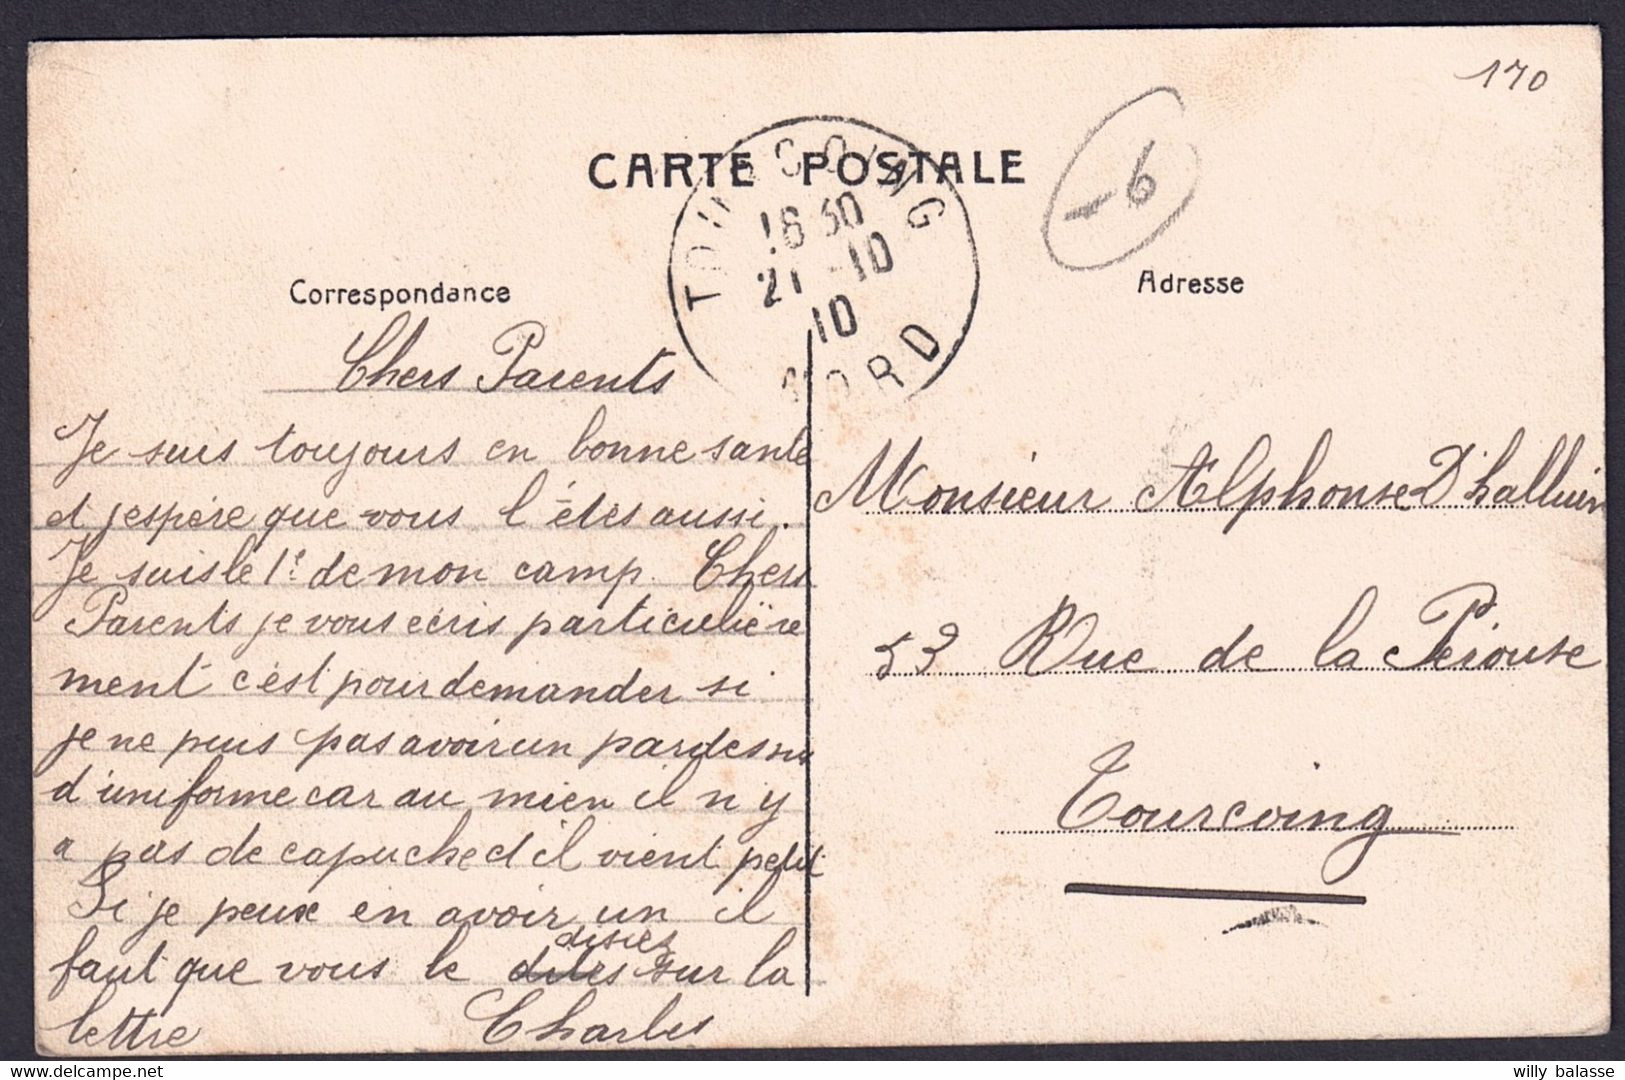 170
CARTE POSTALE
-6
TOURCOING
18 30
21 -10
10
NORD
Correspondance
Adresse
Chers Parents
Je suis toujours en bonne sante
et j'espère que vous l'étes aussi.
Je suis le 1e de mon camp. Chers
Parents je vous ecris particulière
ment c'est pour demander si
je ne peus pas avoir un pardessus
d'uniforme car au mien il n'y
a pas de capuche et il vient petit
Si je peux en avoir un il
disiez
faut que vous le dites sur la
lettre Charles
Monsieur Alphonse D'halluin
53 Rue de la Pérouse
Tourcoing
delcampe.net
willy balasse